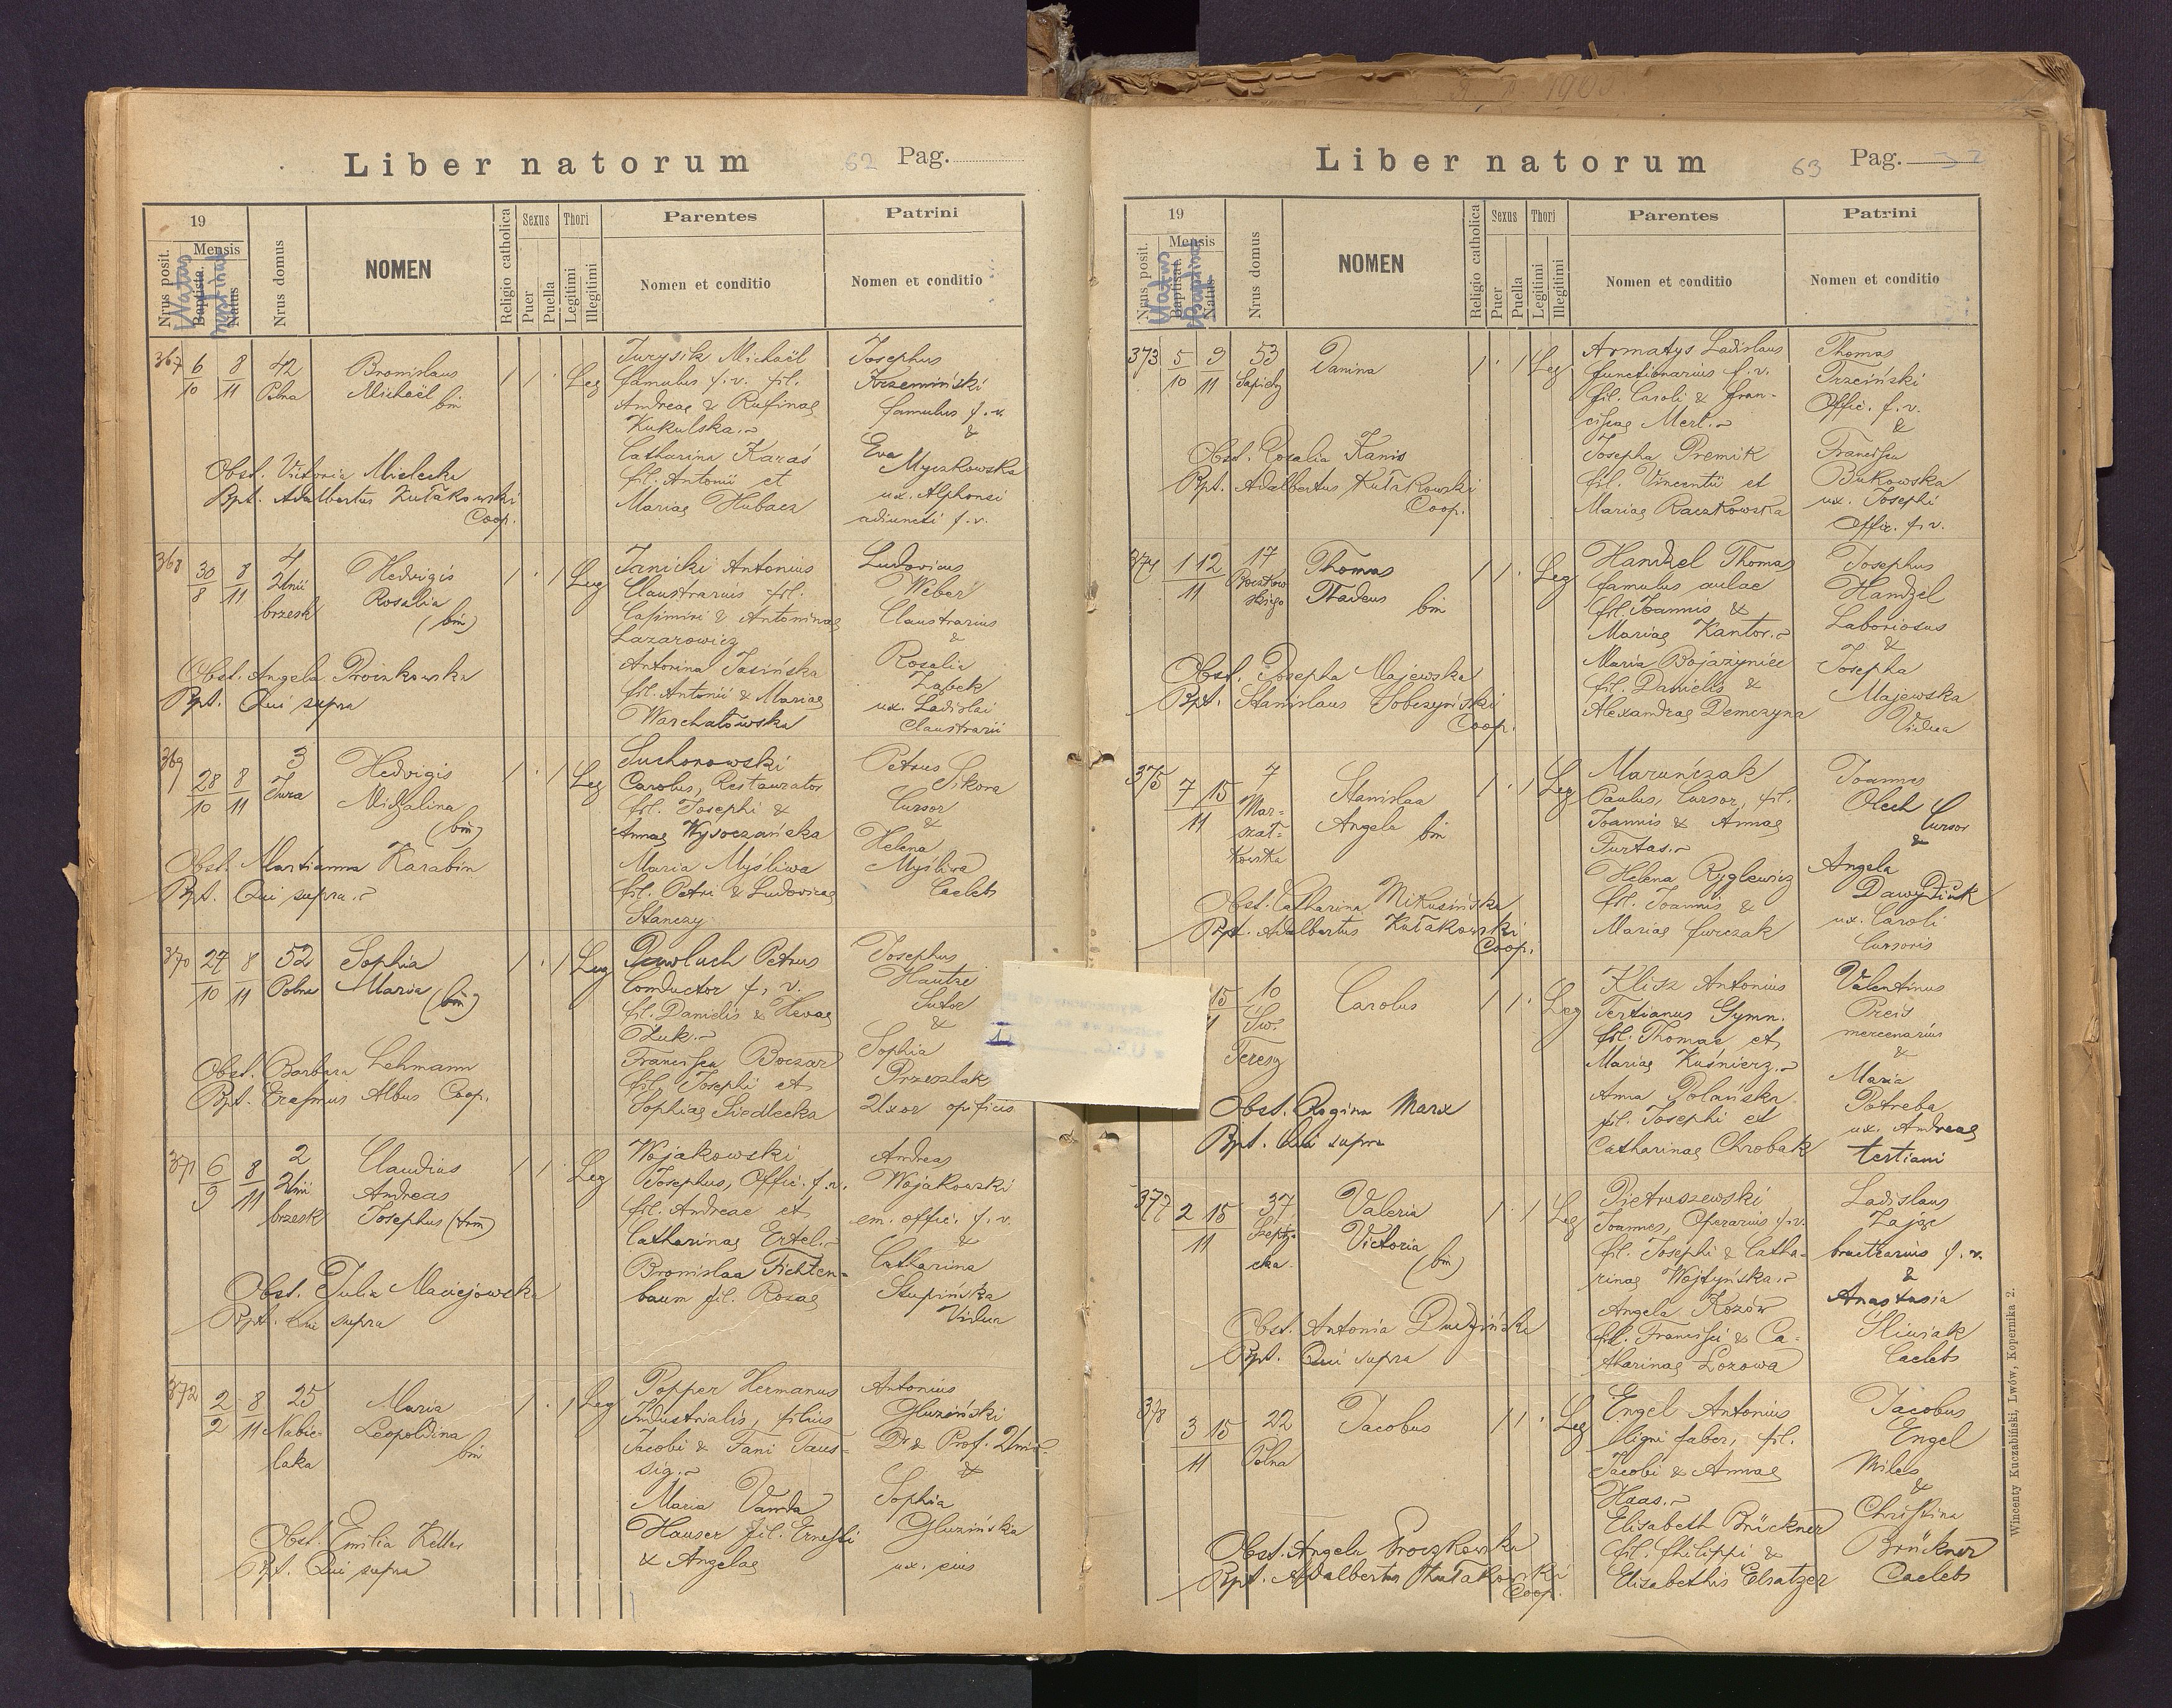 Liber natorum
62 Pag.
19
Nrus posit.
Mensis
Baptista.
Natus
Natus
Nrus domus
NOMEN
Religio catholica
Sexus
Puer
Puella
Thori
Legitimi
Illegitimi
Parentes
Nomen et conditio
Patrini
Nomen et conditio
367 6/10 8/11 42 Polna
Bronislaus
Michaël bin
1 1 . Leg
Jurysik Michaël
famulus f. v. fil.
Andreae & Rufinae
Kukulska.
Catharina Karaś
fil. Antonii et
Mariae Hubacz
Josephus
Krzemiński
famulus f. v.
&
Eva
Myczkowska
ux. Alphonsi
adiuncti f. v.
Obst. Victoria Mielecka
Bpt. Adalbertus Kułakowski
Coop.
368 30/8 8/11 4 Unii brzesk
Hedvigis
Rosalia
(bin)
1 . 1 Leg
Janicki Antonius
Claustrarius fil.
Casimiri & Antoninae
Lazarowicz
Antonina Jasińska
fil. Antonii & Mariae
Warchałowska
Ludovicus
Weber
Claustrarius
&
Rosalia
Ząbek
ux. Ladislai
Claustrarii
Obst. Angela Proinkowska
Bpt. Qui supra
369 28/10 8/11 3 Jura
Hedvigis
Michalina
(bin)
1 . 1 Leg
Suchorowski
Carolus, Restaurator
fil. Josephi &
Annae Wysoczańska
Maria Myśliwa
fil. Petri & Ludovicae
Stanczy
Petrus
Sikora
Cursor
&
Helena
Myśliwa
Caelebs
Obst. Martianna Karabin
Bpt. Qui supra.
370 27/10 8/11 52 Polna
Sophia
Maria (bin)
1 . 1 Leg
Pawluch Petrus
Conductor f. v.
fil. Danielis & Hevae
Żuk.
Francisca Boczar
fil. Josephi et
Sophiae Siedlecka
Josephus
Hautze
Sutor
&
Sophia
Przeszlak
Uxor opificis
Obst. Barbara Lehmann
Bpt. Erasmus Albus Coop.
371 6/9 8/11 2 Unii brzesk
Claudius
Andreas
Josephus (trin)
1 1 . Leg
Wojakowski
Josephus, Offic. f. v.
fil. Andreae et
Catharinae Ertel.
Bronislaa Fichten-
baum fil. Rosae
Andreas
Wojakowski
em. offic. f. v.
&
Catharina
Słupińska
Vidua
Obst. Julia Maciejowska
Bpt. Qui supra
372 2/2 8/11 25 Nabie-
laka
Maria
Leopoldina
bin
1 . 1 Leg
Popper Hermanus
Industrialis, filius
Jacobi & Fani Taus-
sig.
Maria Vanda
Hauser fil. Ernesti
& Angelae
Antonius
Gluziński
Dr & Prof. Univ.
&
Sophia
Gluzińska
ux. eius
Obst. Emilia Keller
Bpt. Qui supra
Liber natorum
63 Pag.
19
Nrus posit.
Mensis
Baptisat.
Natus
Natus
Nrus domus
NOMEN
Religio catholica
Sexus
Puer
Puella
Thori
Legitimi
Illegitimi
Parentes
Nomen et conditio
Patrini
Nomen et conditio
373 5/10 9/11 53 Sapiehy
Danina
1 . 1 Leg
Armatys Ladislaus
functionarius f. v.
fil. Caroli & Fran-
ciscae Mert.
Josepha Premik
fil. Vincentii et
Mariae Raczkowska
Thomas
Trzciński
Offic. f. v.
&
Francisca
Bukowska
ux. Josephi
Offic. f. v.
Obst. Rosalia Kanis
Bpt. Adalbertus Kułakowski
Coop.
374 1 12/11 17
Thomas
Thadeus bin
1 1 . Leg
Handzel Thomas
famulus aulae
fil. Joannis &
Mariae Kantor.
Maria Bojażyniec
fil. Danielis &
Alexandrae Demczyna
Josephus
Handzel
Laboriosus
&
Josepha
Majewska
Vidua
Obst. Josepha Majewska
Bpt. Stanislaus Sobczyński
Coop.
375 7 15/11 7 Mar-
szał-
kowska
Stanislaa
Angela bin
1 . 1 Leg
Maruńczak
Paulus, Cursor, fil.
Joannis & Annae
Furtas.
Helena Ryglewicz
fil. Joannis &
Mariae Jurczak
Joannes
Olech
Cursor
&
Angela
Dawydiuk
ux. Caroli
Cursoris
Obst. Catharina Mikusińska
Bpt. Adalbertus Kułakowski
Coop.
15 10 Św.
Teresy
Carolus
1 1 . Leg
Klisz Antonius
Tertianus Gymn.
fil. Thomae et
Mariae Kuśnierz.
Anna Polańska
fil. Josephi et
Catharinae Chrobak
Valentinus
Preis
mercenarius
&
Maria
Potreba
ux. Andreae
tertiani
Obst. Regina Marx
Bpt. Qui supra
377 2 15/11 37 Szepty-
cka
Valeria
Victoria
(bin)
1 . 1 Leg
Pietruszewski
Joannes, Operarius f. v.
fil. Josephi & Catha-
rinae Wojtyńska.
Angela Kozów
fil. Francisci & Ca-
tharinae Lozowa
Ladislaus
Zając
bructearius f. v.
&
Anastasia
Śliwiak
Caelebs
Obst. Antonia Dudzińska
Bpt. Qui supra
378 3 15/11 22 Polna
Jacobus
1 1 . Leg
Engel Antonius
ligni faber, fil.
Jacobi & Annae
Haas.
Elisabeth Brückner
fil. Philippi &
Elisabethis Elsatzer
Jacobus
Engel
Miles
&
Christina
Brückner
Caelebs
Obst. Angela Proczkowska
Bpt. Adalbertus Kułakowski
Coop.
Wincenty Kuczabiński, Lwów, Kopernika 2.